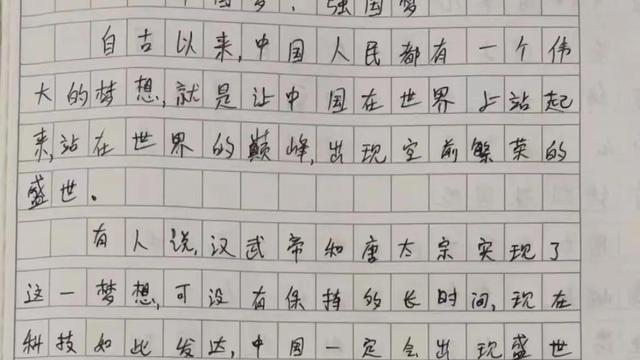 中国梦，强国梦
自古以来，中国人民都有一个伟
大的梦想，就是让中国在世界上站起
来，站在世界的巅峰，出现空前繁荣的
盛世。
有人说，汉武帝和唐太宗实现了
这一梦想，可没有保持的长时间，现在
科技如此发达，中国一定会出现盛世